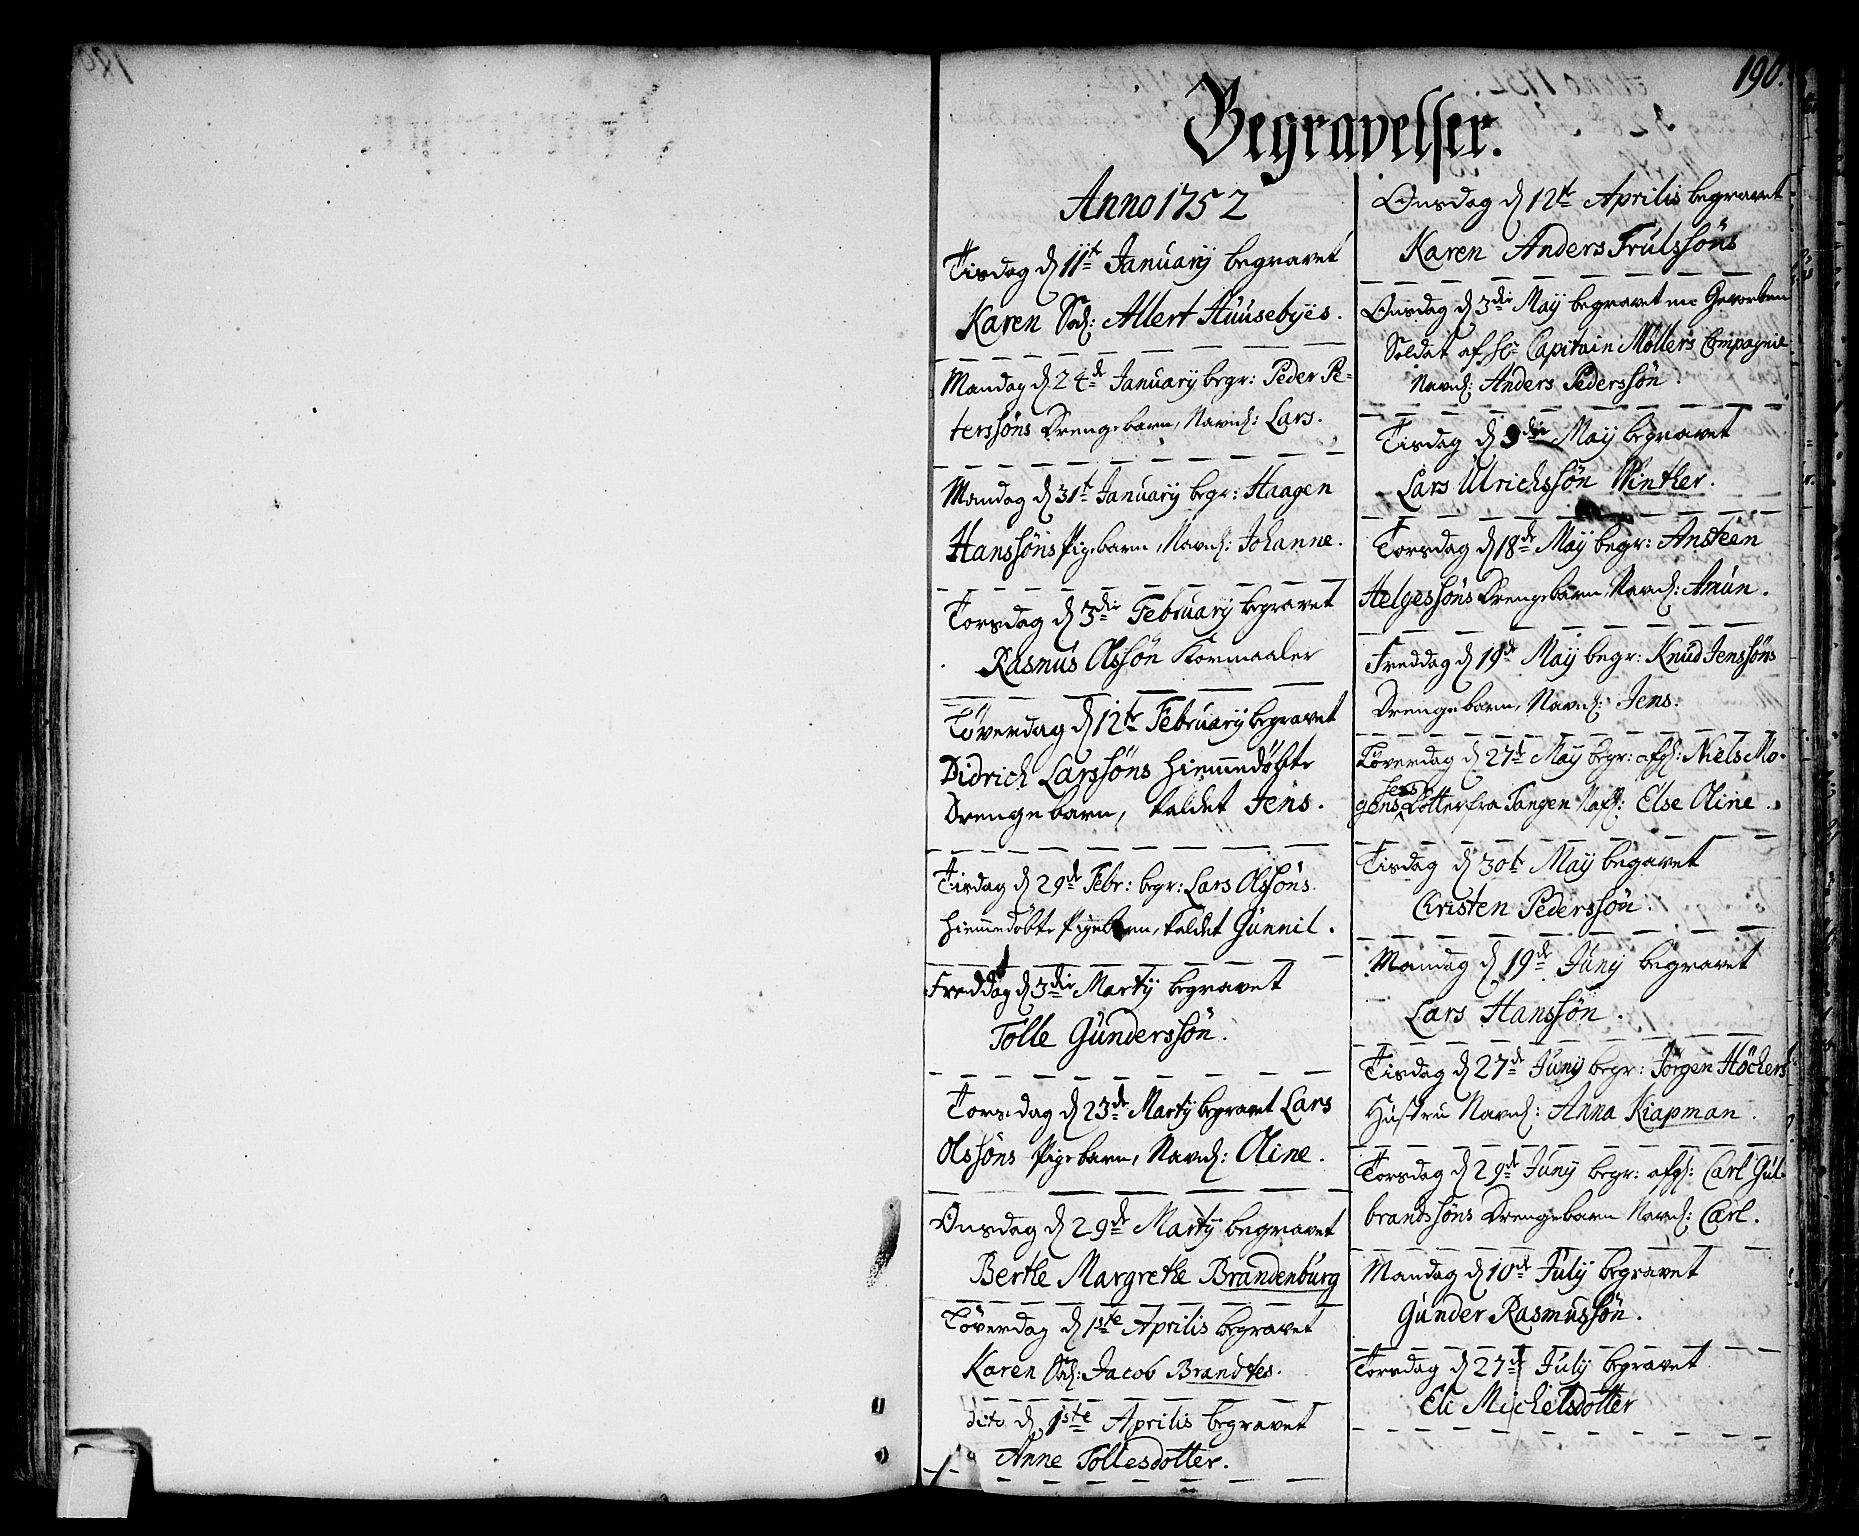 190.
Begravelser.
Anno 1752
Tisdag d 11te January begravet
Karen Sal: Allert Huusebyes.
Mandag d 24de January begr: Peder Pe-
terssöns Drengebarn, Navnl: Lars.
Mandag d 31te January begr: Haagen
Hanssöns Pigebarn, Navnl: Johanne.
Torsdag d 3die February begravet
Rasmus Olssön Kornmaaler
Töverdag d 12te February begravet
Didrich Larssöns Hiemmedöbte
Drengebarn, kaldet Jens.
Tisdag d 29de Febr: begr: Lars Olssöns
Hiemmedöbte Pigebarn, kaldet Gunnil.
Freddag d 3die Marty begravet
Tolle Gunderssön.
Torsdag d 23de Marty begravet Lars
Olssöns Pigebarn, Navnl: Oline.
Onsdag d 29de Marty begravet
Berthe Margrethe Brandenburg
Töverdag d 1ste Aprilis begravet
Karen Sal: Jacob Brandtes.
dito d 1ste Aprilis begravet
Anne Tollesdotter.
Onsdag d 12te Aprilis begravet
Karen Anders Trulssöns
Onsdag d 3die May begravet en Geworben
Soldat af Hr Capitain Möllers Compagnie
Navnl: Anders Pederssön.
Tisdag d 9die May begravet
Lars Ulrichssön Winther.
Torsdag d 18de May begr: Ansteen
Helgessöns Drengebarn, Navnl: Amun.
Freddag d 19de May begr: Knud Jenssöns
Drengebarn, Navnl: Jens.
Töverdag d 27de May begr: afgl: Niels Mo-
gens Dotter fra Tangen Nafl: Else Oline.
Tisdag d 30te May begavet
Christen Pederssön.
Mandag d 19de Juny begravet
Lars Hanssön.
Tisdag d 27de Juny begr: Jörgen Höckers
Hustru Navnl: Anna Kiapman.
Torsdag d 29de Juny begr: afgl: Carl Gul-
brandssöns Drengebarn Navnl: Carl.
Mandag d 10de July begravet
Gunder Rasmussön.
Torsdag d 27de July begravet
Eli Michelsdotter